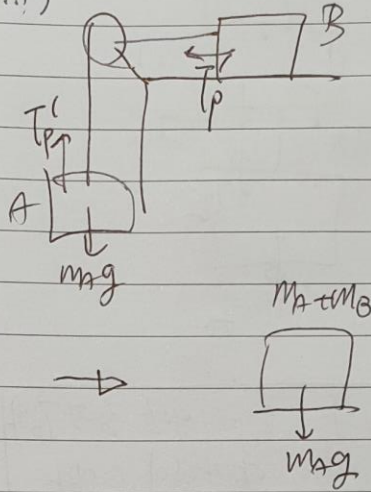 B
Tp
Tp'
A
mAg
mA+mB
mAg